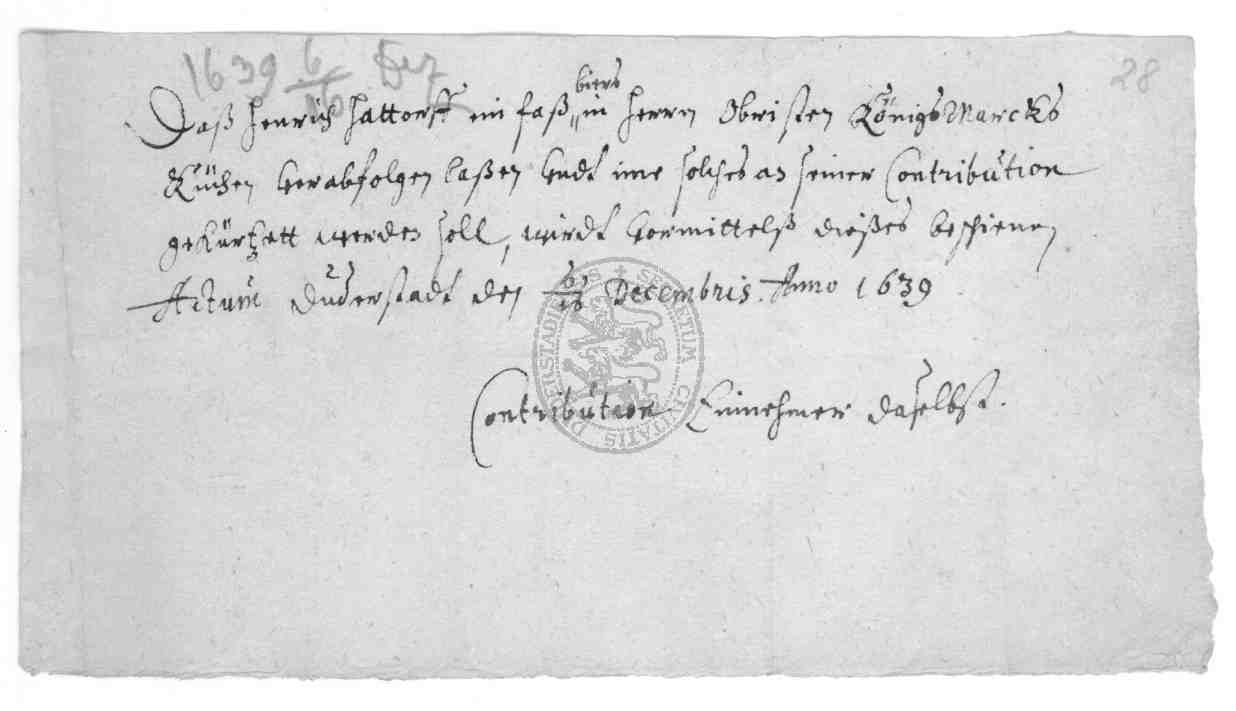 1639 6/16 Dez
28
biers
Daß Henrich Hattorff ein faß in Herrn Obristen KönigsMarcks
Küchen verabfolgen laßen vndt ime solches an seiner Contribution
gekürtzett werden soll, wirdt vormittelß dießes beschienen
Actum Duderstadt den 6/16 Decembris. Anno 1639
Contribution Einnehmer daselbst.
SECRETUM CIVITATIS DUDERSTADIENSIS